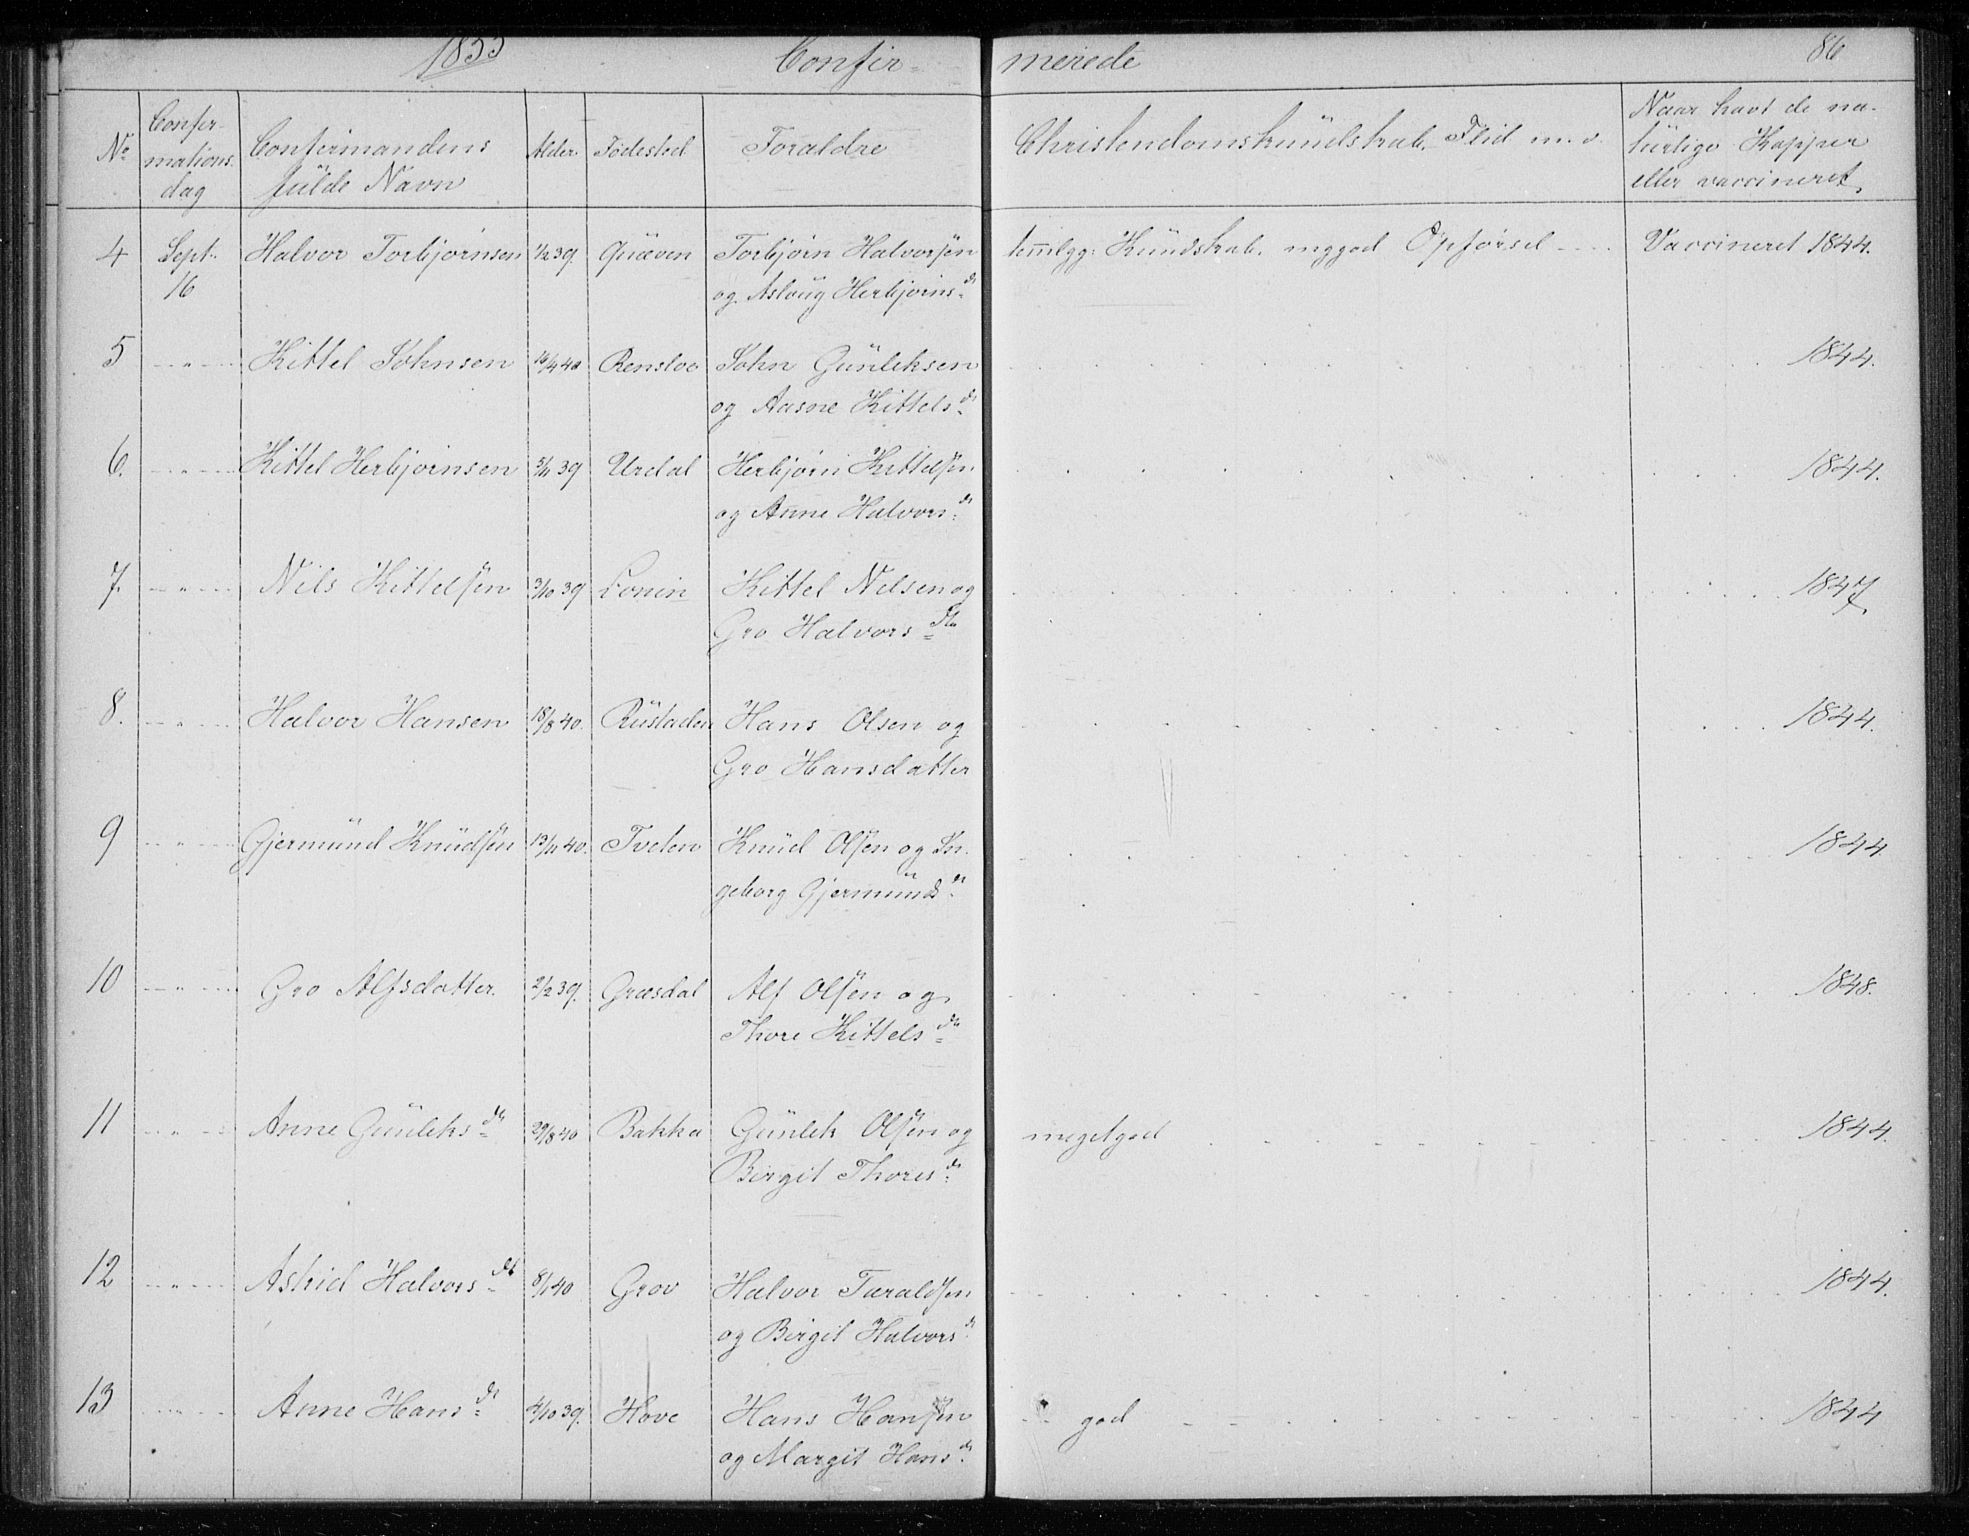 1855 Confirmerede 86
No Confirmationsdag Confirmandens fulde Navn Alder Fødested Foraldre Christendomskundskab, Flid m.v. Naar havt de naturlige Kopper eller vaccineret.
4 Sept. 16 Halvor Torbjørnsen 1/2 39. Qvæven Torbjørn Halvorsen temlgg: Kundskab. mggod Opførsel Vaccineret 1844.
og Aslaug Herbjørnsdr
5 " Kittel Johnsen 14/4 40 Rensloe John Gunleksen 1844.
og Aasne Kittelsdr
6. " Kittel Herbjørnsen 5/11 39 Urdal Herbjørn Kittelsen 1844.
og Anne Halvorsdr
7. " Nils Kittelsen 3/10 39 Kittel Nilsen og 1847.
Gro Halvorsdtr
8. " Halvor Hansen 18/8 40. Rustaden Hans Olsen og 1844.
Gro Hansdatter
9 " Gjermund Knudsen 13/11 40. Tveten Knud Olsen og In- 1844.
geborg Gjermundsdr
10 " Gro Alfsdatter. 2/2 39. Græsdal Alf Olsen og 1848.
Thore Kittelsdtr
11 " Anne Gunleksdtr 29/8 40 Bakka Gunlek Olsen og megetgod 1844.
Birgit Thoresdr
12 " Astrid Halvorsdt 8/1 40 Grov Halvor Taraldsen 1844.
og Birgit Halvorsdr
13 " Anne Hansdr 4/10 39. Hove Hans Hansen god 1844
og Margit Hansdr